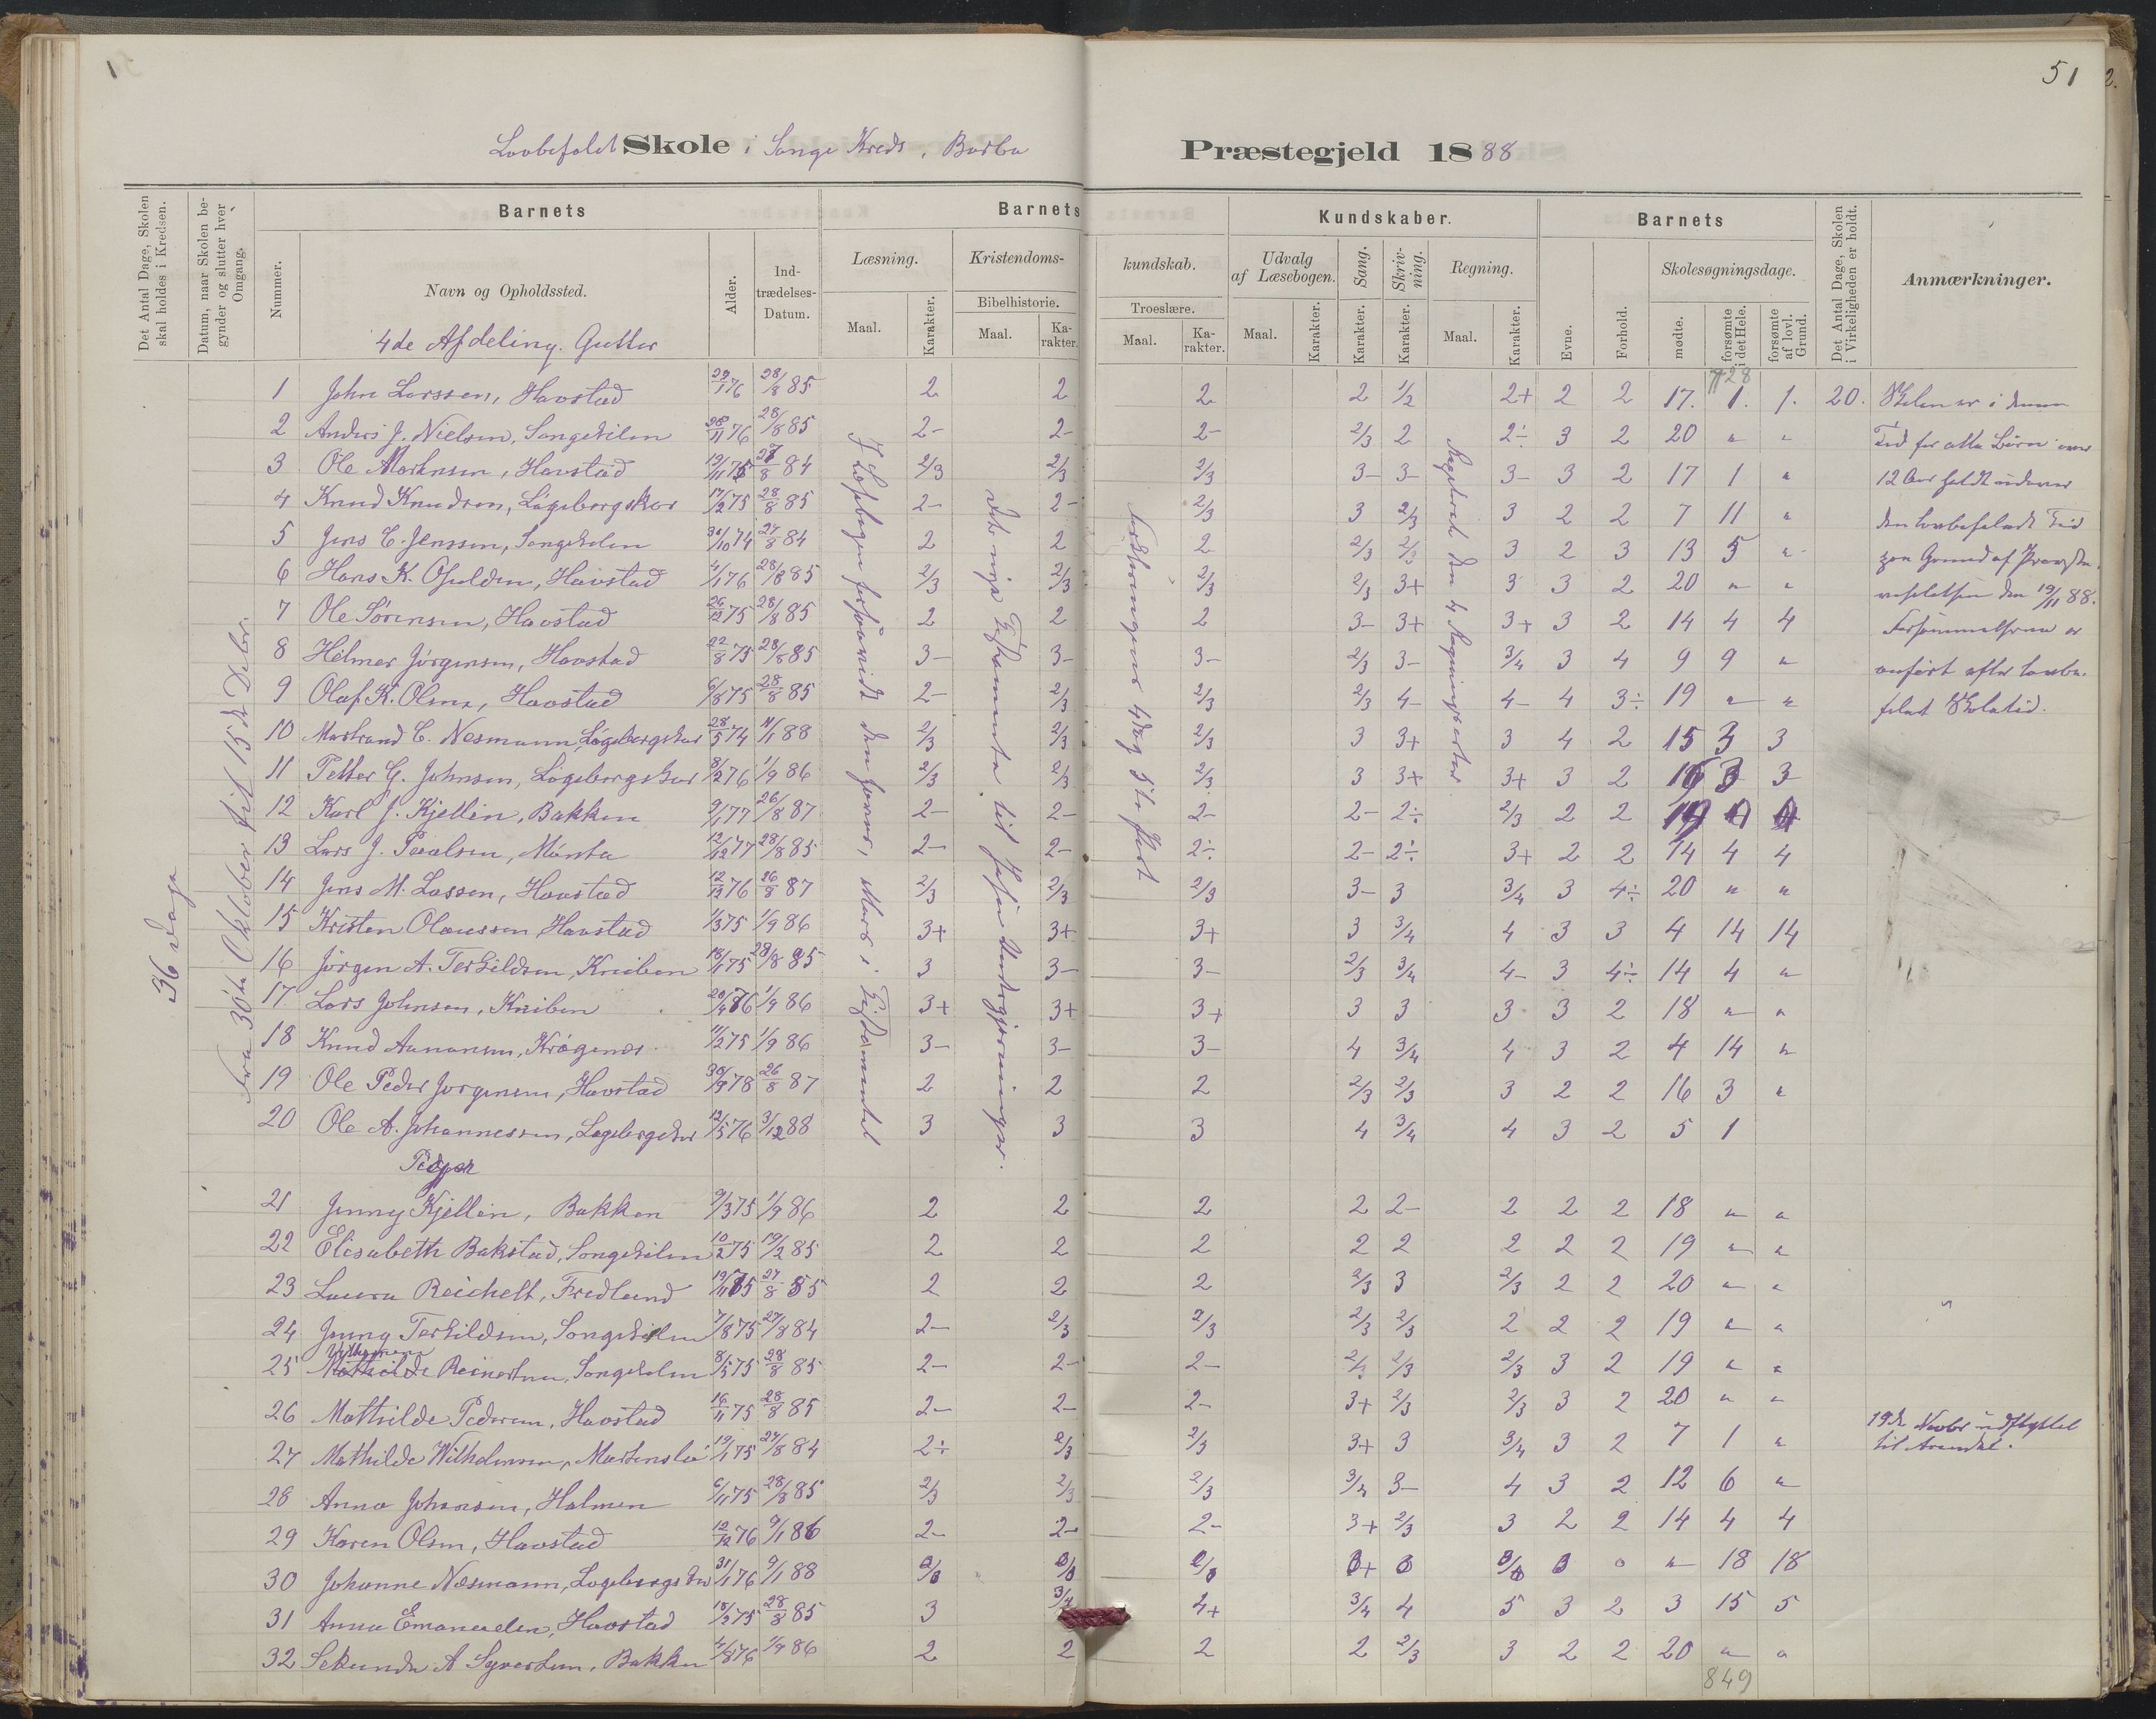 51
Lovbefalet Skole i Songe Kreds, Barbu Præstegjeld 1888
Det Antal Dage, Skolen skal holdes i Kredsen.
Datum, naar Skolen begynder og slutter hver Omgang.
Barnets
Nummer.
Navn og Opholdssted.
Alder.
Indtrædelses-Datum.
Barnets Kundskaber.
Læsning.
Maal.
Karakter.
Kristendomskundskab.
Bibelhistorie.
Maal.
Karakter.
Troeslære.
Maal.
Karakter.
Udvalg af Læsebogen.
Maal.
Karakter.
Sang.
Karakter.
Skrivning.
Karakter.
Regning.
Maal.
Karakter.
Barnets
Evne.
Forhold.
Skolesøgningsdage.
mødte.
forsømte i det Hele.
forsømte af lovl. Grund.
Det Antal Dage, Skolen i Virkeligheden er holdt.
Anmærkninger.
36 Dage
Fra 30te Oktober til 15de Debr.
4de Afdeling. Gutter
1 John Larssen, Havstad 29/1 76 28/8 85 2 2 2 2 1/2 2+ 2 2 17. 1. 1. 20.
2 Anders J. Nielsen, Songekilen 28/11 76 28/8 85 2- 2- 2- 2/3 2 2÷ 3 2 20 " "
3 Ole Mortensen, Havstad 19/11 75 27/8 84 2/3 2/3 2/3 3- 3- 3- 3 2 17 1 "
4 Knud Knudsen, Løgebergskar 17/12 75 28/8 85 2- 2- 2/3 3 2/3 3 2 2 7 11 "
5 Jens C. Jenssen, Songekilen 30/10 74 27/8 84 2 2 2 2/3 2/3 3 2 3 13 5 "
6 Hans K. Ofulden, Havstad 4/1 76 28/8 85 2/3 2/3 2/3 2/3 3+ 3 3 2 20 " "
7 Ole Sørensen, Havstad 26/12 75 28/8 85 2 2 2 3- 3+ 3+ 3 2 14 4 4
8 Hilmar Jørgensen, Havstad 22/8 75 28/8 85 3- 3- 3- 2/3 3- 3/4 3 4 9 9 "
9 Olaf K. Olsen, Havstad 6/8 75 28/8 85 2- 2/3 2/3 2/3 4- 4- 4 3÷ 19 " "
10 Martrand C. Nesmann, Løgebergskar 28/5 74 11/1 88 2/3 2/3 2/3 3 3+ 3 4 2 15 3 3
11 Petter G. Johnsen, Løgebergskar 8/2 76 1/9 86 2/3 2/3 2/3 3 3+ 3+ 3 2 16 3 3
12 Karl J. Kjellin, Bakken 9/1 77 26/8 87 2- 2- 2- 2- 2÷ 2/3 2 2
13 Lars J. Paalsen, Mønta 12/12 77 28/8 85 2- 2- 2÷ 2- 2÷ 3+ 2 2 14 4 4
14 Jens M. Lassen, Havstad 12/12 76 26/8 87 2/3 2/3 2/3 3- 3 3/4 3 4÷ 20 " "
15 Kristen Olaussen Havstad 1/3 75 1/9 86 3+ 3+ 3+ 3 3/4 4 3 3 4 14 14
16 Jørgen A. Terkildsen, Kniben 18/1 75 28/8 85 3 3- 3- 2/3 3/4 4- 3 4÷ 14 4 "
17 Lars Johnsen, Kniben 20/4 76 1/9 86 3+ 3+ 3+ 3 3 3 3 2 18 " "
18 Knud Aanonsen, Krøgenes 11/2 75 1/9 86 3- 3- 3- 4 3/4 4 3 2 4 14 "
19 Ole Peder Jørgensen, Havstad 30/9 78 26/8 87 2 2 2 2/3 2/3 3 2 2 16 3 "
20 Ole A. Johannessen, Løgebergskar 12/5 76 3/12 88 3 3 3 4 3/4 4 3 2 5 1
Piger
21 Jenny Kjellin, Bakken 9/3 75 1/9 86 2 2 2 2 2- 2 2 2 18 " "
22 Elisabeth Bakstad, Songekilen 10/2 75 19/2 85 2 2 2 2 2 2 2 2 19 " "
23 Laura Reichelt, Fredlund 19/11 75 27/8 85 2 2 2 2/3 3 2/3 2 2 20 " "
24 Jenny Terkildsen, Songekilen 7/8 75 27/8 84 2- 2/3 2/3 2/3 2/3 2 2 2 19 " "
25 Reinertsen, Songekilen 8/5 75 28/8 85 2- 2- 2- 2/3 2/3 2/3 3 2 19 " "
26 Mathilde Pedersen, Havstad 16/11 75 28/8 85 2- 2- 2- 3+ 2/3 2/3 3 2 20 " "
27 Mathilde Wilhelmsen, Martenslei 19/1 75 27/8 84 2÷ 2/3 2/3 3+ 3 3/4 3 2 7 1 "
28 Anna Johansen, Holmen 6/11 75 28/8 85 2/3 2/3 2/3 3/4 3- 4 3 2 12 6 "
29 Karen Olsen, Havstad 12/12 76 9/1 86 2- 2- 2- 3+ 2/3 3 2 2 14 4 4
30 Johanne Nesmann, Løgebergskar 31/1 76 9/1 88 " 18 18
31 Anna Emanuelsen, Havstad 18/2 75 28/8 85 3 3/4 4+ 3/4 4 5 3 2 3 15 5
32 Sekunda A Syvertsen, Bakken 4/8 76 1/9 86 2 2 2 2 2/3 3 2 2 20 " "
849
I Læsebogen forsaavidt den forrer, Mors i Testamentet
det nye Testamente til Jesu Undergjerninger.
Forklaringens 4de og 5te Part
Regnebok den 4 Regningsarter
Skolen er i denne
Tid for alle Børn over
12 Aar holdt udover
den lovbefalede Tid
paa Grund af Provste-
visitatsen den 19/11 88.
Forsømmelserne er
anført efter lovbe-
falet Skoletid.
19de Novbr udflyttet
til Arendal.